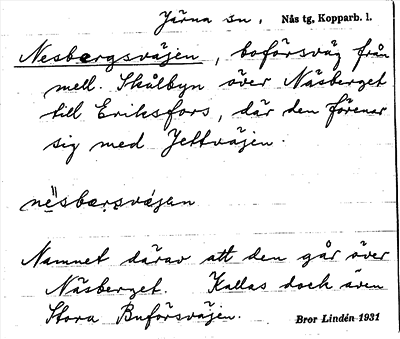 Järna sn. Nås tg, Kopparb. l.
Nesbergsväjen, boförsväg från
mell. Skålbyn över Näsberget
till Eriksfors, där den förenar
sig med Jettväjen.
Namnet därav att den går över
Näsberget. Kallas doch även
Stora Buförsväjen.
Bror Lindén 1931